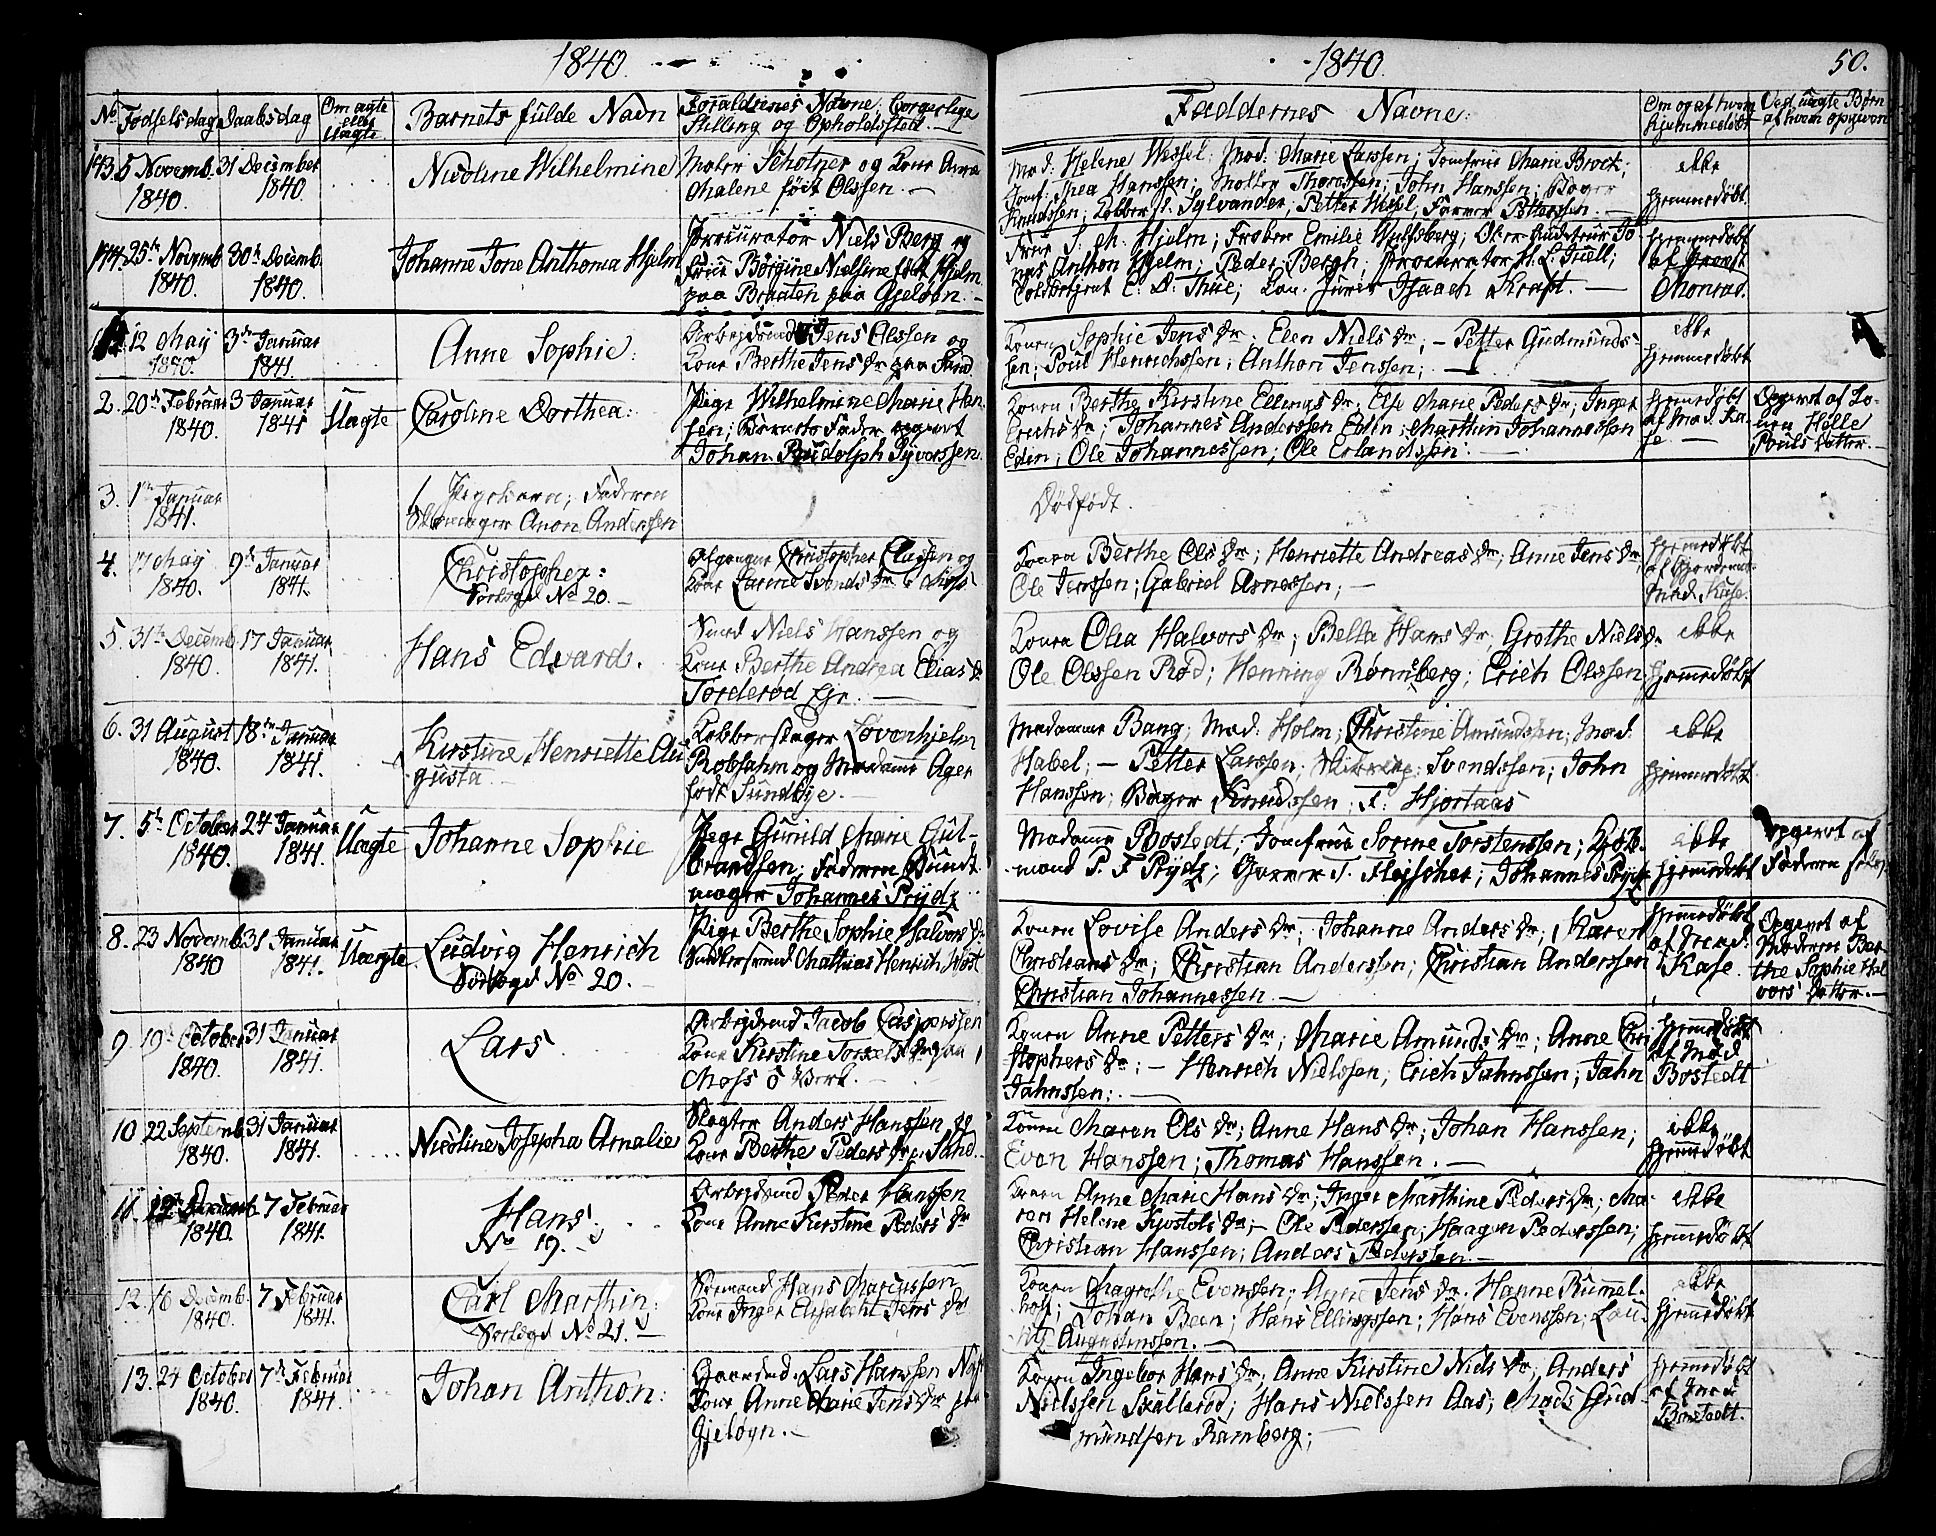 1840.
1840.
50.
No Fødselsdag Daabsdag Om ægte eller Uægte Barnets fulde Navn Forældrenes Navne, Borgerlige Stilling og Opholdssted.
Faddernes Navne:
Om og af hvem hjemmedøbt
Ved uægte Børn af hvem opgiven
143. 5 Novemb. 1840. 31 December 1840. Nicoline Wilhelmine
Matros Schøtner og Kone Anne
Malene født Olssen. —
Mad: Helene Wessel; Mad: Marie Larssen; Jomfrue Marie Brock;
Jomf: Thea Hanssen; Thoressen; John Hanssen; Bager
Knudssen; Kobbersl. Sylvander; Petter Wessel, Farver Petterssen. —
ikke hjemmedøbt
144. 25de Novemb 1840. 30te Decemb. 1840. Johanne Tone Anthonia Hjelm
Procurator Niels Berg og
Frue Børgine Nielsine født Hjelm
paa Braaten paa Gjeløen. —
Frue S. M. Hjelm; Frøken Emilie Wulfsberg; Over Auditeur Jo-
nas Anthon Hjelm; Peder Bergh; Procurator H. L. Juell;
C. D. Thue; Isaach Kraft. —
hjemmedøbt af Provst Monrad.
12 May 1840. 3de Januar 1841. Anne Sophie:
Arbeidsmd Jens Olssen og
Kone Berthe Jens Dr paa Sand
Konen Sophie Jens Dr; Elen Niels Dr; — Petter Gudmunds-
sen; Poul Henrichssen; Anthon Jenssen; —
ikke hjemmedøbt
2. 20de Februar 1840. 3 Januar 1841 Uægte Caroline Dorthea:
Pige Wilhelmine Marie Han-
sen; Barnets Fader opgivet
Johan Rudolph Syverssen.
Konen Berthe Kirstine Ellings Dr; Else Marie Peders Dr; Inger
Erichs Dr; Johannes Anderssen Eden; Marthin Johannessen
Eden; Ole Johannessen; Ole Erlandssen. —
hjemmedøbt af Mad. Ka-
se. —
Opgivet af Ko-
nen Helle
Pouls Datter. —
3. 1te Januar 1841.
1 Pigebarn; Faderen
Anon Anderssen
Dødfødt.
4. 17 May 1840. 9de Januar 1841. Christopher:
Forlagd No 20. —
Christopher Classen og
Kone Larine Svends Dr
Konen Berthe Ols Dr; Henriette Andreas Dr; Anne Jens Dr;
Ole Jenssen; Gabriel Arnessen; —
hjemmedøbt af Gjordemor
Mad. Kase.
5. 31te Decemb 1840. 17 Januar 1841. Hans Edvard.
Smed Niels Hanssen og
Kone Berthe Andrea Elias Dr
Torderød Eje. —
Konen Olea Halvors Dr; Bella Hans Dr, Grethe Niels Dr
Ole Olssen Rød; Henning Rønneberg; Erich Olssen;
ikke hjemmedøbt
6. 31 August 1840. 18de Januar 1841. Kirstine Henriette Au
gusta —
Kobberslager Løvenhjelm
Robsahm og Madame Ager
født Sundbye. —
Madamme Bang, Mad: Holm; Christine Amundssen; Mad.
Habel; — Petter Larssen; Svendssen; John
Hanssen; Bager Knudssen; F. Hjortaas
ikke hjemmedøbt
7. 5te October 1840. 24 Januar 1841. Uægte Johanne Sophie
Pige Gunild Marie Gul-
brandssen; Faderen Bundt-
mager Johannes Prydz
Madame Bostedt; Jomfrue Sorine Torstenssen; Kjøb-
mand P. F. Prydz; Garver T. Fleischer; Johannes Prydz
ikke hjemmedøbt
opgivet af
Faderen selv
8. 23 Novemb 1840 31 Januar 1841. Uægte. Ludvig Henrich
Forlagd No 20. —
Pige Berthe Sophie Halvors Dr
Mathias Henrich
Konen Lovise Anders Dr; Johanne Anders Dr; Karen
Christians Dr; Christian Anderssen; Christian Anderssen
Christian Johannessen. —
hjemmedøbt af Mad: Kase.
Opgivet af
Moderen Ber-
the Sophie Hal-
vors Datter. —
9. 19de October 1840. 31 Januar 1841. Lars
Arbeidsmd Jacob Casperssen
Kone Kirstine Torkels Dr paa
Moss Werk. —
Konen Anne Petters Dr; Marie Amunds Dr; Anne Chri-
stophers Dr; — Henrich Nielssen; Erich Jahnssen; Jahn
Jahnssen; —
hjemmedøbt af Mad Bostedt
10. 22 Septemb. 1840. 31 Januar 1841. Nicoline Josepha Amalie
Slagter Anders Hanssen og
Kone Berthe Peders Dr p. Sand.
Konen Maren Ols Dr; Anne Hans Dr; Johan Hanssen;
Even Hanssen; Thomas Hanssen. —
ikke hjemmedøbt
11. 1840. 7 Februar 1841. Hans;
No 19. —
Arbeidsmd Peder Hanssen
Kone Anne Kirstine Peders Dr
Konen Anne Marie Hans Dr; Inger Marthine Peders Dr; Ma-
ren Helene Kjøstols Dr; — Ole Pederssen; Haagen Pederssen;
Christian Hanssen; Anders Pederssen —
ikke hjemmedøbt
12. 16 Decemb. 1840. 7 Februar 1841. Carl Marthin;
Forlagd No 21. —
Sømand Hans Marcussen
Kone Inger Elisabeth Jens Dr
Konen Magrethe Evenssen; Anne Jens Dr. Hanne Rummel-
hoff; Johan Been; Hans Ellingssen; Hans Evenssen; Lau-
rits Augustinssen. —
ikke hjemmedøbt
13. 24 October 1840. 7de Februar 1841. Johan Anthon:
Lars Hanssen
Kone Anne Marie Jens Dr paa
Gjeløen. —
Konen Ingebor Hans Dr; Anne Kirstine Niels Dr, Anders
Nielssen Skallerød; Hans Nielssen Aas; Mads Gud-
mundsen Ramberg; —
hjemmedøbt af Mad Bostedt.